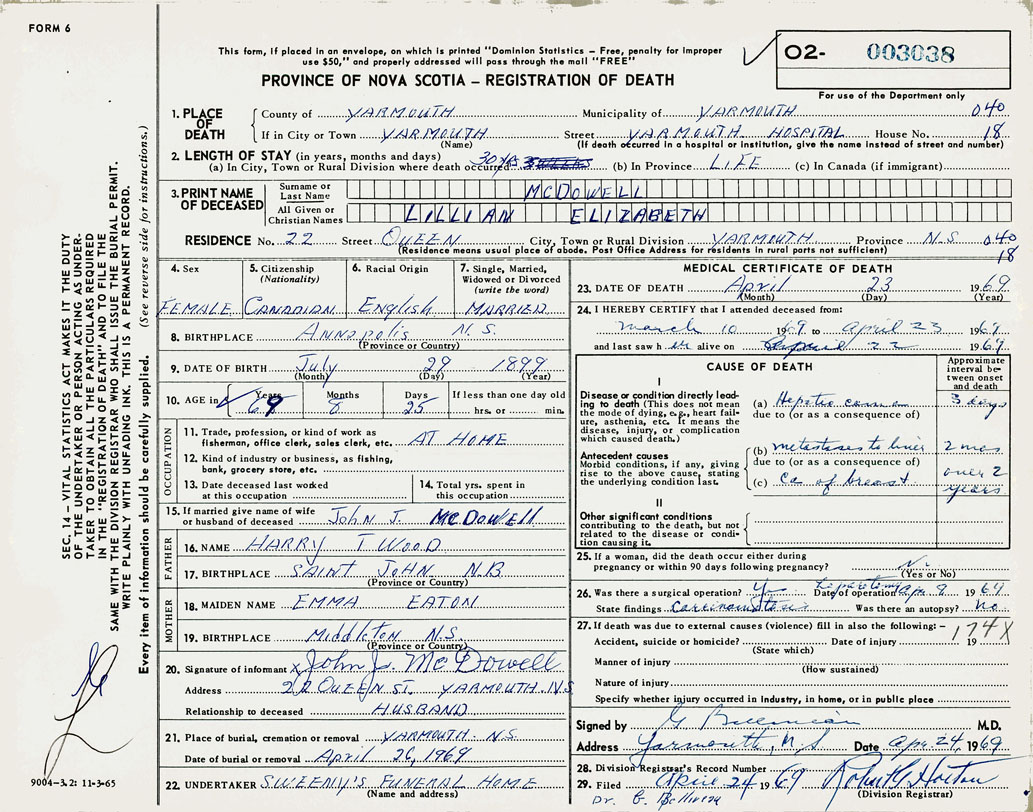 FORM 6
This form, if placed in an envelope, on which is printed "Dominion Statistics – Free, penalty for improper
use $50," and properly addressed will pass through the mail "FREE"
PROVINCE OF NOVA SCOTIA – REGISTRATION OF DEATH
02- 003038
For use of the Department only
1. PLACE OF DEATH
County of YARMOUTH Municipality of YARMOUTH 040
If in City or Town YARMOUTH Street YARMOUTH HOSPITAL House No. 18
(Name) (If death occurred in a hospital or institution, give the name instead of street and number)
2. LENGTH OF STAY (in years, months and days)
(a) In City, Town or Rural Division where death occurred 30 yrs (b) In Province LIFE (c) In Canada (if immigrant)
3. PRINT NAME OF DECEASED
Surname or Last Name MCDOWELL
All Given or Christian Names LILLIAN ELIZABETH
RESIDENCE No. 22 Street QUEEN City, Town or Rural Division YARMOUTH Province N.S 040
(Residence means usual place of abode. Post Office Address for residents in rural parts not sufficient) 18
4. Sex FEMALE
5. Citizenship (Nationality) CANADIAN
6. Racial Origin English
7. Single, Married, Widowed or Divorced (write the word) MARRIED
8. BIRTHPLACE Annapolis N.S.
(Province or Country)
9. DATE OF BIRTH July 29 1899
(Month) (Day) (Year)
10. AGE in Years 69 Months 8 Days 25 If less than one day old hrs. or min.
OCCUPATION
11. Trade, profession, or kind of work as fisherman, office clerk, sales clerk, etc. AT HOME
12. Kind of industry or business, as fishing, bank, grocery store, etc.
13. Date deceased last worked at this occupation
14. Total yrs. spent in this occupation
15. If married give name of wife or husband of deceased John J. McDowell
FATHER
16. NAME HARRY T WOOD
17. BIRTHPLACE SAINT JOHN N.B
(Province or Country)
MOTHER
18. MAIDEN NAME EMMA EATON
19. BIRTHPLACE Middleton N.S.
(Province or Country)
20. Signature of informant x John J. McDowell
Address 22 QUEEN ST. YARMOUTH. N.S
Relationship to deceased HUSBAND
21. Place of burial, cremation or removal YARMOUTH N.S.
Date of burial or removal April 26, 1969
22. UNDERTAKER SWEENY'S FUNERAL HOME
(Name and address)
MEDICAL CERTIFICATE OF DEATH
23. DATE OF DEATH April 23 1969
(Month) (Day) (Year)
24. I HEREBY CERTIFY that I attended deceased from:
march 10 1969 to april 23 1969
and last saw h er alive on April 22 1969
CAUSE OF DEATH
Approximate interval between onset and death
I
Disease or condition directly leading to death (This does not mean the mode of dying, e.g., heart failure, asthenia, etc. It means the disease, injury, or complication which caused death.)
(a) Hepatic coma 3 days
due to (or as a consequence of)
Antecedent causes
Morbid conditions, if any, giving rise to the above cause, stating the underlying condition last.
(b) metastases to liver 2 mos
due to (or as a consequence of)
(c) Ca of breast over 2 years
II
Other significant conditions
contributing to the death, but not related to the disease or condition causing it.
25. If a woman, did the death occur either during pregnancy or within 90 days following pregnancy?
(Yes or No)
26. Was there a surgical operation? Yes Date of operation Apr 8 1969
State findings Was there an autopsy? No
27. If death was due to external causes (violence) fill in also the following: – 174X
Accident, suicide or homicide? Date of injury 19
(State which)
Manner of injury
(How sustained)
Nature of injury
Specify whether injury occurred in industry, in home, or in public place
Signed by M.D.
Address Yarmouth, N.S Date Apr. 24, 1969
28. Division Registrar's Record Number
29. Filed April 24 1969 Robert G Horton
(Division Registrar)
SEC. 14 – VITAL STATISTICS ACT MAKES IT THE DUTY
OF THE UNDERTAKER OR PERSON ACTING AS UNDER-
TAKER TO OBTAIN ALL THE PARTICULARS REQUIRED
IN THE "REGISTRATION OF DEATH" AND TO FILE THE
SAME WITH THE DIVISION REGISTRAR WHO SHALL ISSUE THE BURIAL PERMIT.
WRITE PLAINLY WITH UNFADING INK. THIS IS A PERMANENT RECORD.
Every item of information should be carefully supplied. (See reverse side for instructions.)
9004-3.2: 11-3-65